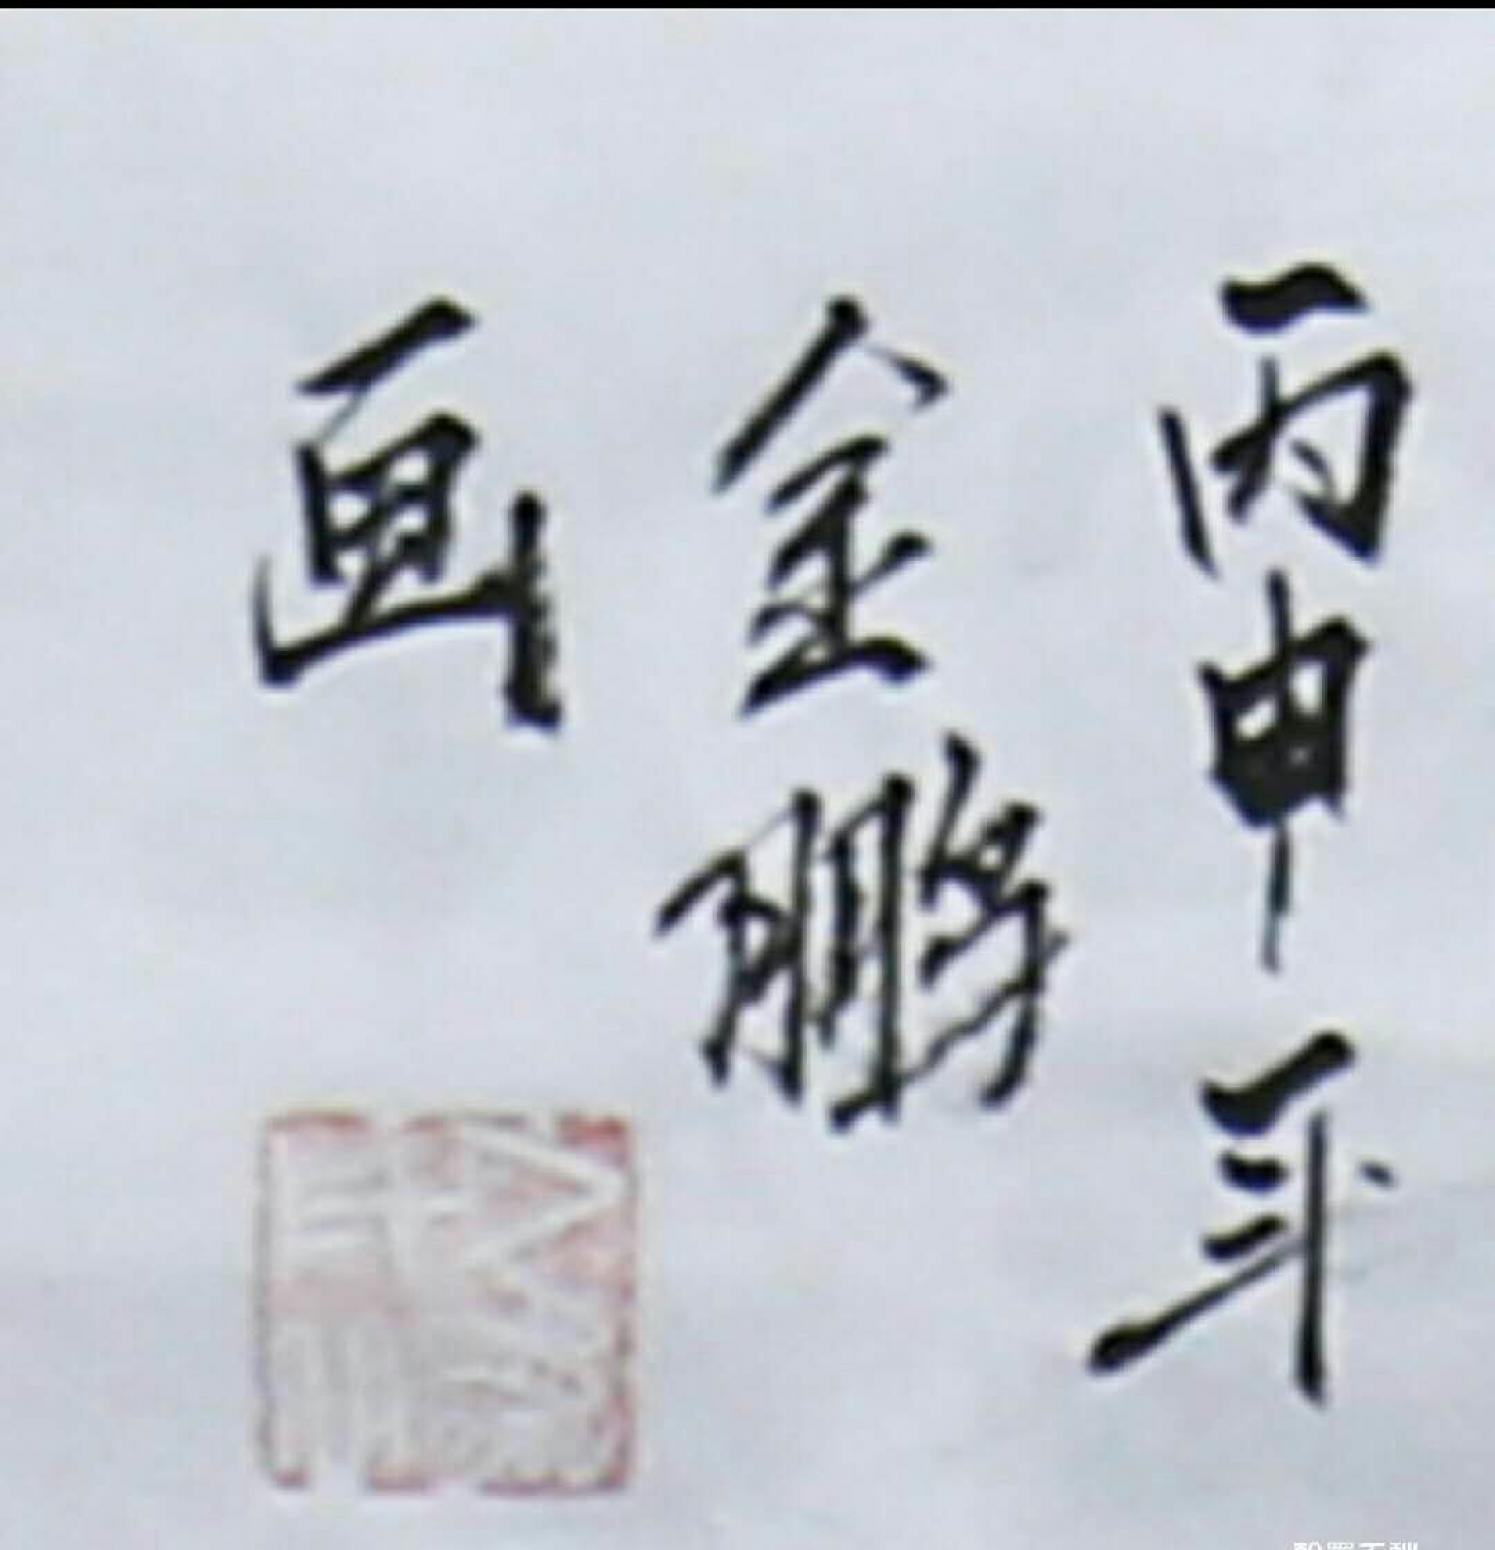 丙申年
金鹏
画